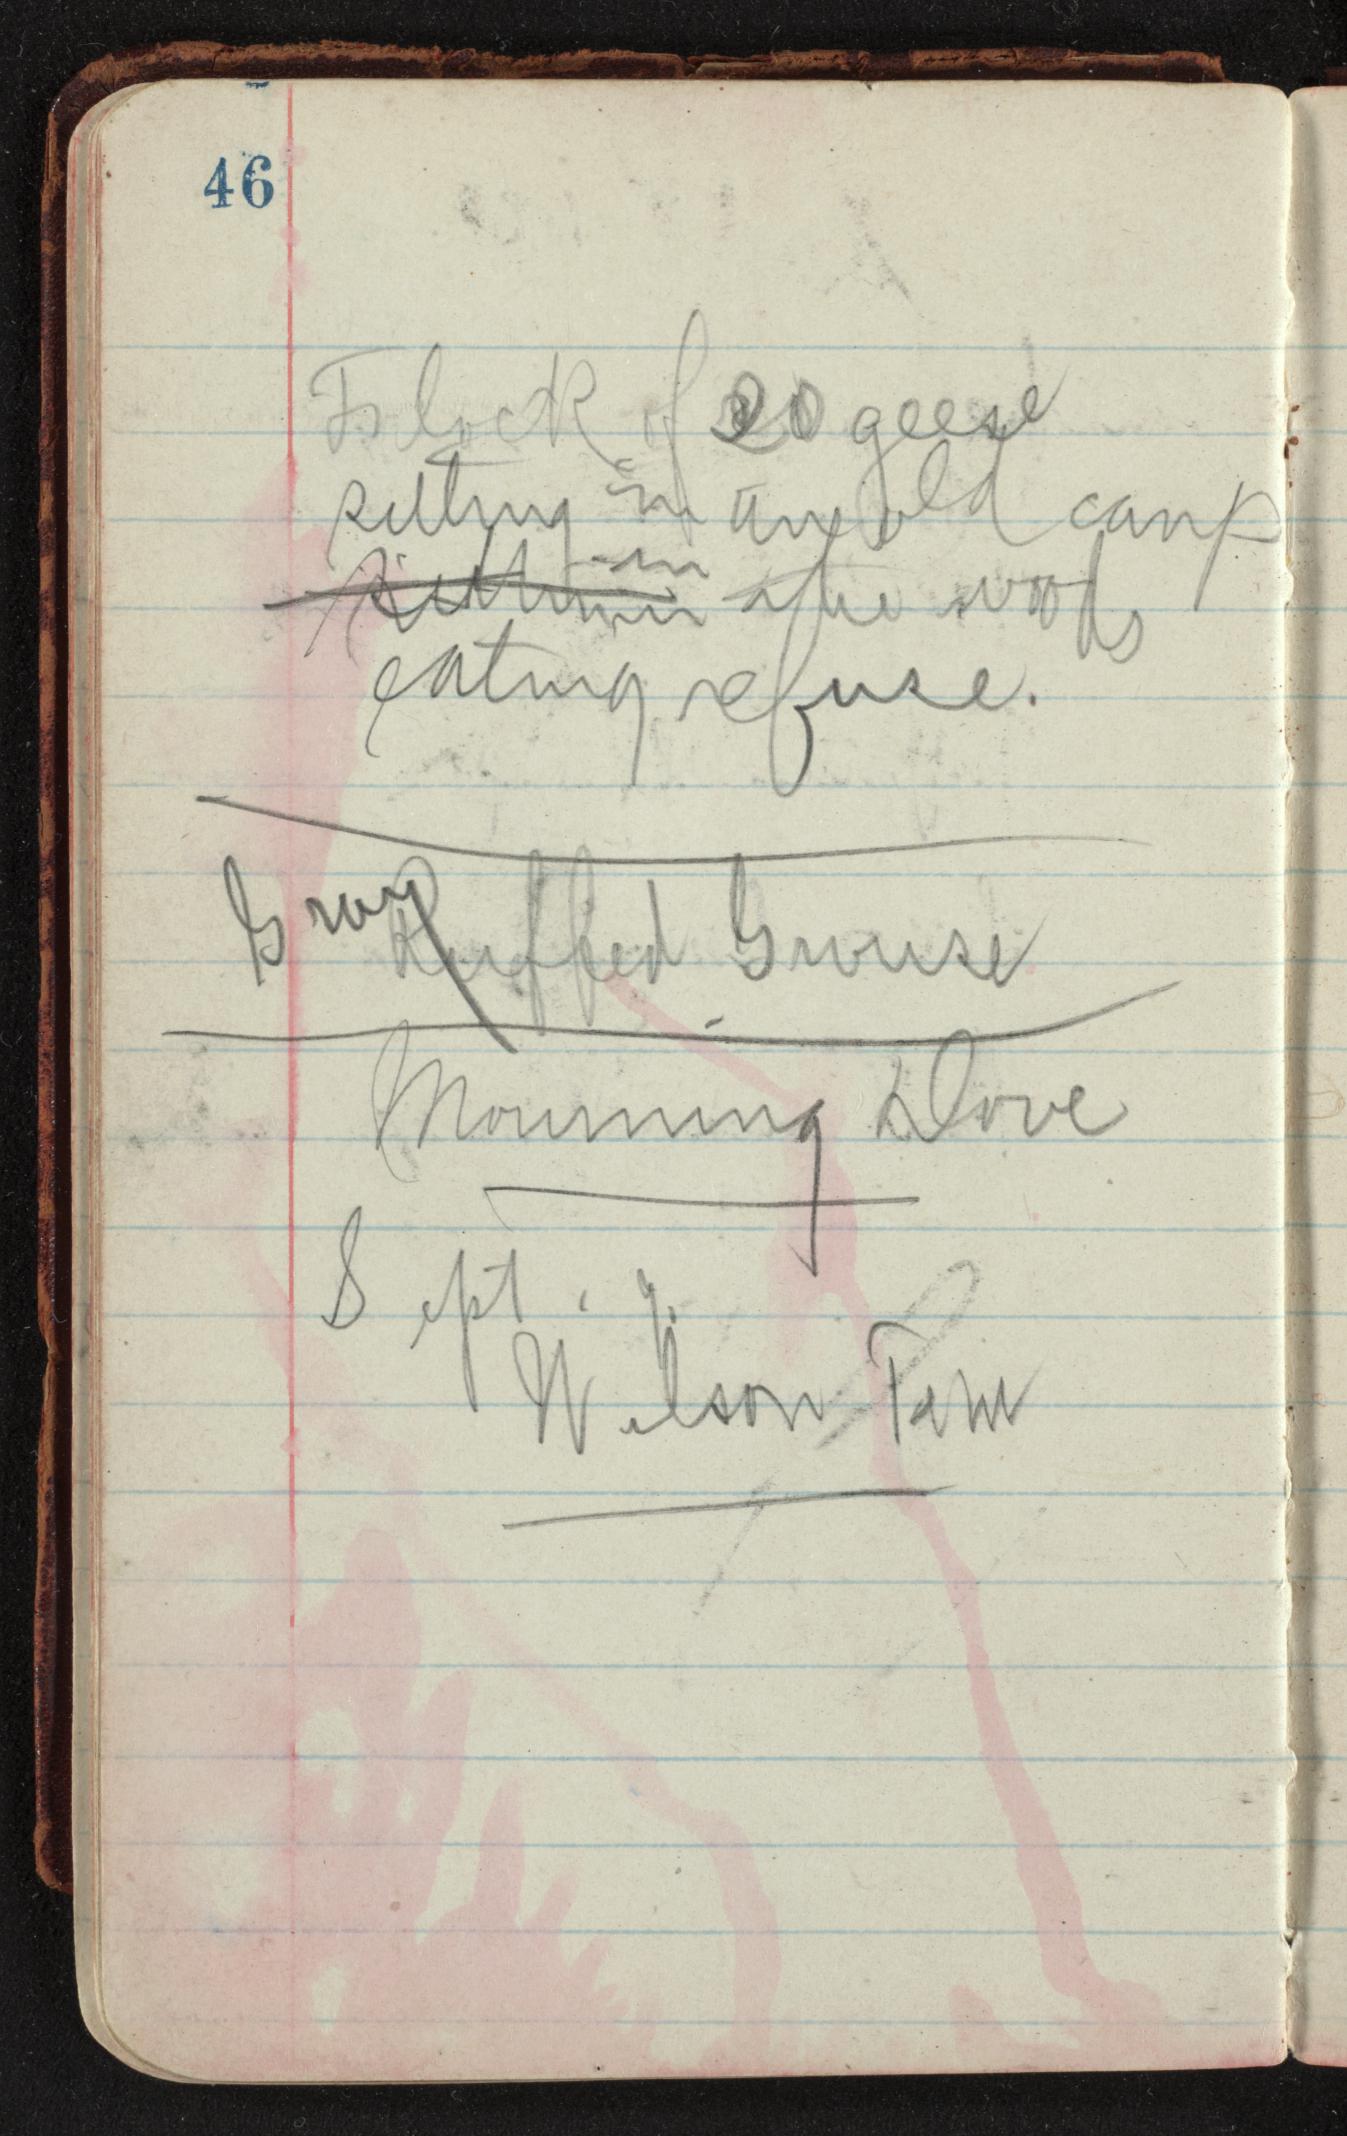 46
Flock of 20 geese
sitting in an old camp
in the woods
eating refuse.
Gray Ruffed Grouse
Mourning Dove
Sept. 7.
Wilson Tern